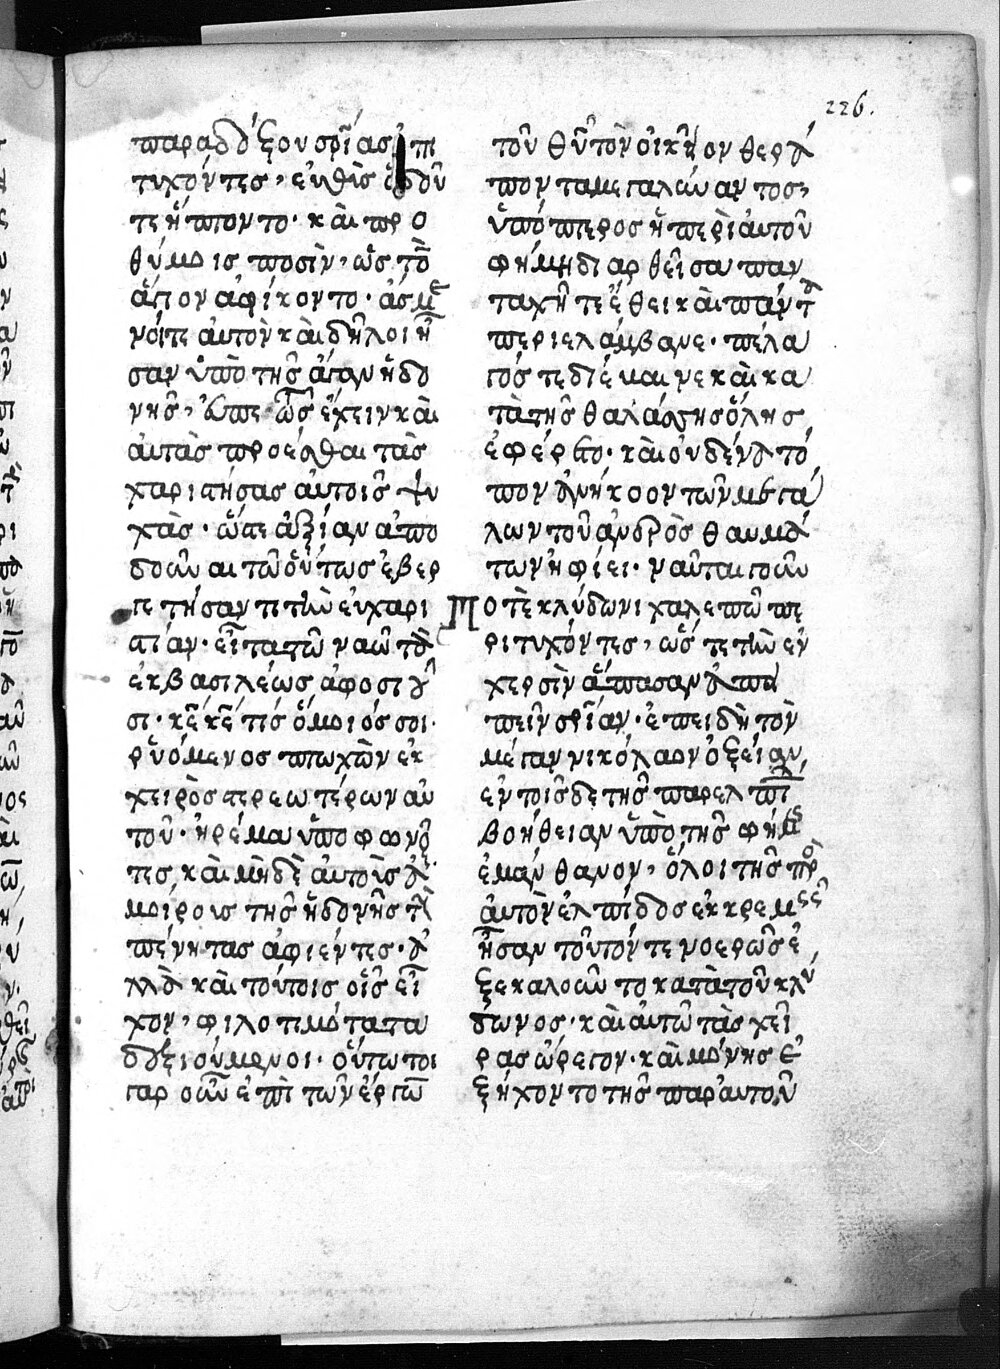 226.
παραδόξου σρίας ἐπι
τυχόντες, εὐθὺς ὁδοῦ
τε ἥπτοντο· καὶ προ
θύμοις ποσὶν, ὡς τὸ
ἄστον ἀφίκοντο· ἀσμε
νοί τε αὐτὸν καὶ δῆλοι ἦ
σαν ὑπὸ τῆς ἄγαν ἡδο
νῆς, ὥς ἔχειν καὶ
αὐτὰς προέσθαι τὰς
χαριτησας αὐτοῖς ψυ
χάς· ὥστε ἀξίαν ἀπο
δοῦναι τῶ οὕτως εὐερ
γετήσαντι τὴν εὐχαρι
στίαν· εἶτα τῶ ναῶ τὸ
ἐκ βασιλέως ἀφοσιοῦ
σι· κε κε τίς ὅμοιός σοι·
ῥυόμενος πτωχὸν ἐκ
χειρὸς στερεωτέρων αὐ
τοῦ· ἠρέμα ὑποφωνοῦ
τες, καὶ μηδὲ αὐτοὺς ἀ
μοίρους τῆς ἡδονῆς τοὺς
πένητας ἀφιέντες· ἀλ
λὰ καὶ τούτοις οἷς εἶ
χον, φιλοτιμότατα
δεξιούμενοι· οὕτω τοι
γαρ οὖν ἐπὶ τῶν ἔργων
τοῦ θυ τὸν οἰκεῖον θερά
ποντα μεγαλύναντος,
ὑπόπτερος ἡ περὶ αὐτοῦ
φήμη διαρθεῖσα παν
ταχῆ τε ἔθει καὶ πάντα
περιελάμβανε· πέλα
γός τε διέβαινε καὶ κα
τὰ τῆς θαλάσσης ὅλης
ἐφέρετο· καὶ οὐδένα τό
πον ἀνήκοον τῶν μεγά
λων τοῦ ἀνδρὸς θαυμά
των ἠφίει· ναῦται γοῦν
ποτὲ κλύδωνι χαλεπῶ πε
ριτυχόντες, ὥς τε τὴν ἐν
χερσὶν ἅπασαν ἀπει
πεῖν σρίαν· ἐπειδὴ τὸν
μέγαν νικόλαον ὀξεῖαν
ἐν τοῖς δε τῆς παρελ
βοήθειαν ὑπὸ τῆς φήμης
ἐμάνθανον, ὅλοι τῆς πρὸς
αὐτὸν ἐλπίδος ἐκκρεμεῖς
ἦσαν τοῦτόν τε νοερῶς ἐ
ξεκάλουν τὸ κατὰ τοῦ κλύ
δωνος· καὶ αὐτῶ τὰς χεῖ
ρας ὤρεγον· καὶ μόνης ἐ
ξήχοντο τῆς παρ' αὐτοῦ